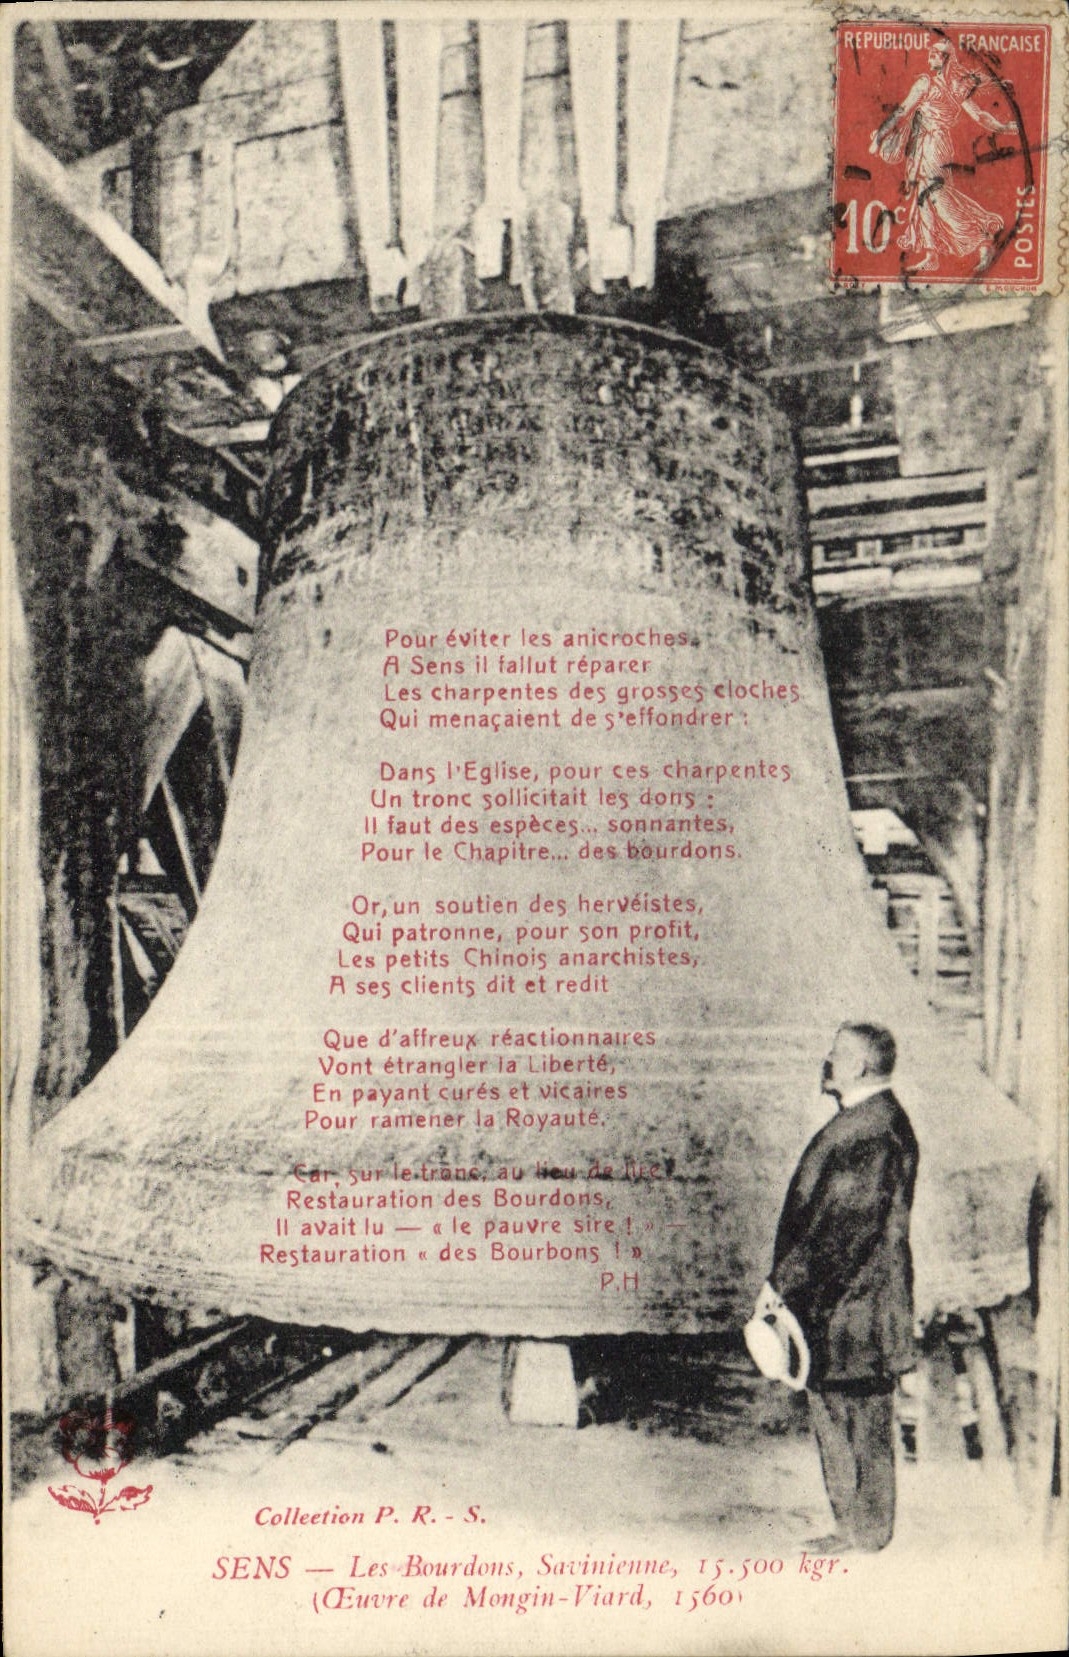 REPUBLIQUE FRANÇAISE
10c
POSTES
E. MOUCHON
Pour éviter les anicroches,
A Sens il fallut réparer
Les charpentes des grosses cloches
Qui menaçaient de s'effondrer :
Dans l'Eglise, pour ces charpentes
Un tronc sollicitait les dons :
Il faut des espèces... sonnantes,
Pour le Chapitre... des bourdons.
Or, un soutien des hervéistes,
Qui patronne, pour son profit,
Les petits Chinois anarchistes,
A ses clients dit et redit
Que d'affreux réactionnaires
Vont étrangler la Liberté,
En payant curés et vicaires
Pour ramener la Royauté.
Car, sur le tronc, au lieu de lire
Restauration des Bourdons,
Il avait lu — « le pauvre sire ! » —
Restauration « des Bourbons ! »
P.H
Collection P. R. - S.
SENS — Les Bourdons, Savinienne, 15.500 kgr.
(Œuvre de Mongin-Viard, 1560)